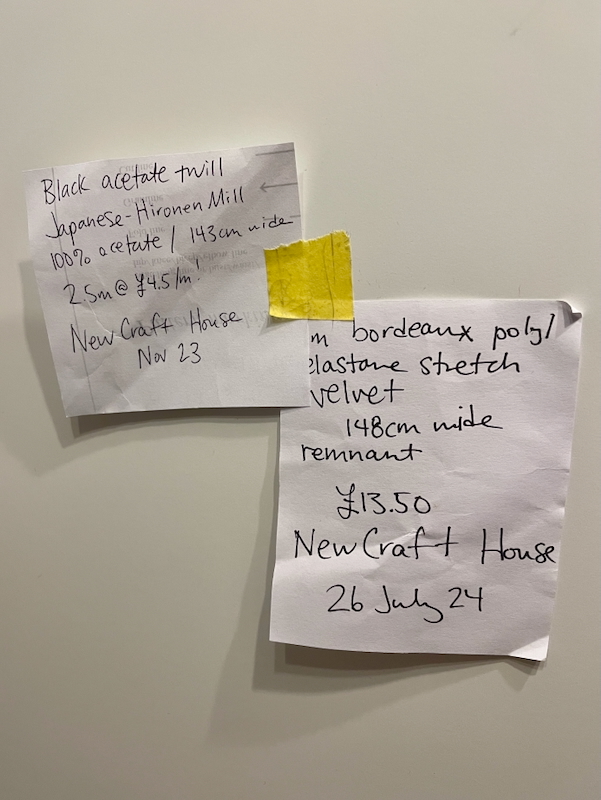 Black acetate twill
Japanese - Hironen Mill
100% acetate / 143cm wide
2.5m @ £4.5/m!
New Craft House
Nov 23
m bordeaux poly/
elastane stretch
velvet
148cm wide
remnant
£13.50
New Craft House
26 July 24